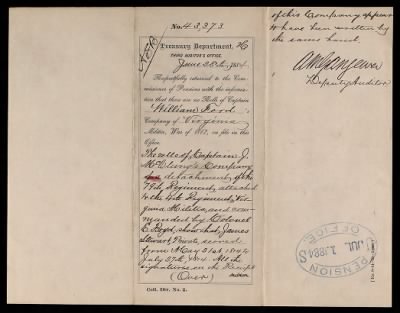 No. 43,373
Treasury Department,
THIRD AUDITOR'S OFFICE,
June 28th, 1884.
Respectfully returned to the Com-
missioner of Pensions with the infor-
mation that there are no Rolls of Captain
William Ford
Company of Virginia
Militia, War of 1812, on file in this
Office.
The rolls of Captain J.
McClung's Company
detachment, of the
79th Regiment, attached
to the 4th Regiment, Vir-
ginia Militia, and com-
manded by Colonel
E. Boyd, show that James
Stuart, Private, served
from May 31st 1814 to
July 27th, 1814. All the
signatures on the Receipt
(Over)
Coll. Div., No. 2.
of this Company appear
to have been written by
the same hand.
Deputy Auditor
PENSION OFFICE
JUL 1 1884